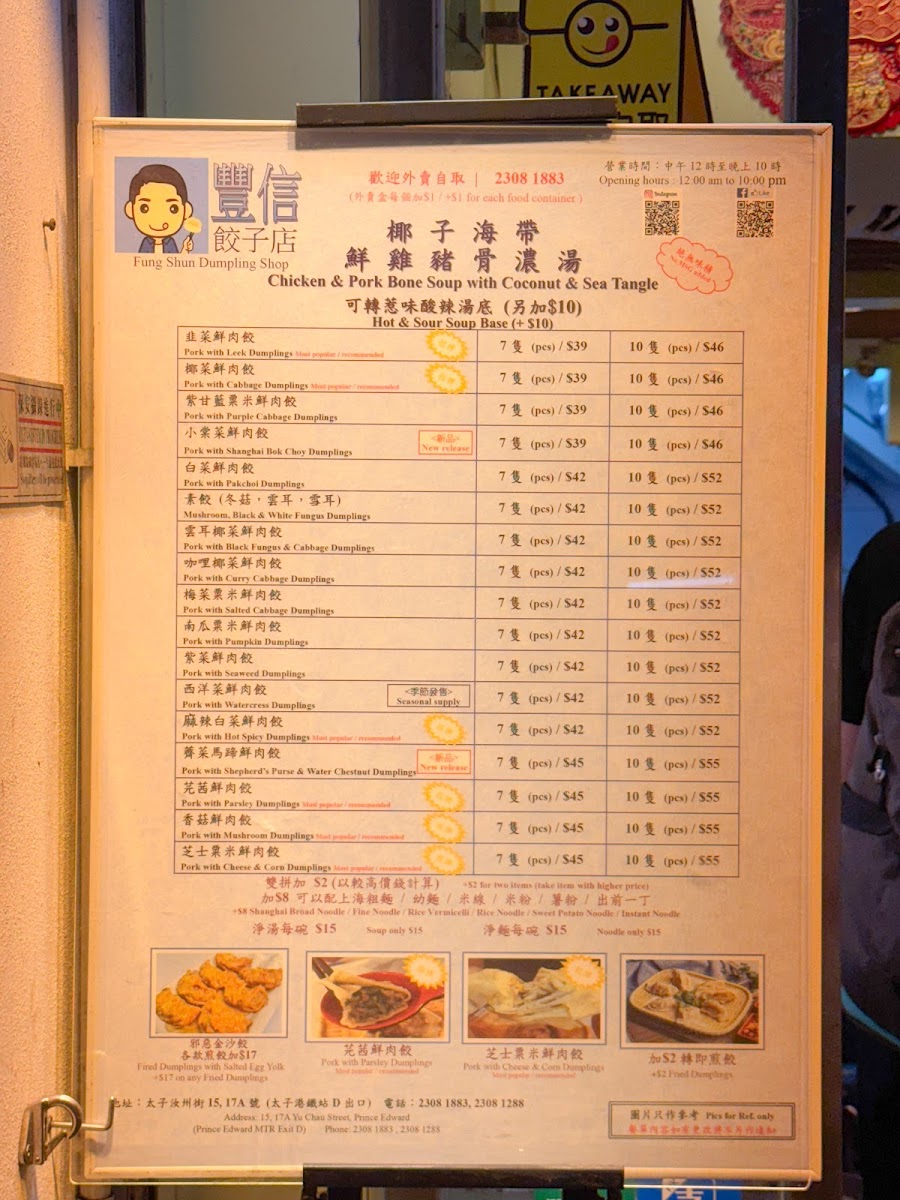 TAKEAWAY
豐信
餃子店
Fung Shun Dumpling Shop
歡迎外賣自取 | 2308 1883
(外賣盒每個加$1 / +$1 for each food container )
營業時間：中午 12 時至晚上 10 時
Opening hours : 12:00 am to 10:00 pm
Instagram
Like
椰子海帶
鮮雞豬骨濃湯
Chicken & Pork Bone Soup with Coconut & Sea Tangle
絕無味精
No MSG added
可轉惹味酸辣湯底 (另加$10)
Hot & Sour Soup Base (+ $10)
韭菜鮮肉餃
Pork with Leek Dumplings Most popular / recommended
7 隻 (pcs) / $39
10 隻 (pcs) / $46
椰菜鮮肉餃
Pork with Cabbage Dumplings Most popular / recommended
7 隻 (pcs) / $39
10 隻 (pcs) / $46
紫甘藍粟米鮮肉餃
Pork with Purple Cabbage Dumplings
7 隻 (pcs) / $39
10 隻 (pcs) / $46
小棠菜鮮肉餃
Pork with Shanghai Bok Choy Dumplings
<新品>
New release
7 隻 (pcs) / $39
10 隻 (pcs) / $46
白菜鮮肉餃
Pork with Pakchoi Dumplings
7 隻 (pcs) / $42
10 隻 (pcs) / $52
素餃 (冬菇，雲耳，雪耳)
Mushroom, Black & White Fungus Dumplings
7 隻 (pcs) / $42
10 隻 (pcs) / $52
雲耳椰菜鮮肉餃
Pork with Black Fungus & Cabbage Dumplings
7 隻 (pcs) / $42
10 隻 (pcs) / $52
咖哩椰菜鮮肉餃
Pork with Curry Cabbage Dumplings
7 隻 (pcs) / $42
10 隻 (pcs) / $52
梅菜粟米鮮肉餃
Pork with Salted Cabbage Dumplings
7 隻 (pcs) / $42
10 隻 (pcs) / $52
南瓜粟米鮮肉餃
Pork with Pumpkin Dumplings
7 隻 (pcs) / $42
10 隻 (pcs) / $52
紫菜鮮肉餃
Pork with Seaweed Dumplings
7 隻 (pcs) / $42
10 隻 (pcs) / $52
西洋菜鮮肉餃
Pork with Watercress Dumplings
<季節發售>
Seasonal supply
7 隻 (pcs) / $42
10 隻 (pcs) / $52
麻辣白菜鮮肉餃
Pork with Hot Spicy Dumplings Most popular / recommended
7 隻 (pcs) / $42
10 隻 (pcs) / $52
薺菜馬蹄鮮肉餃
Pork with Shepherd's Purse & Water Chestnut Dumplings
<新品>
New release
7 隻 (pcs) / $45
10 隻 (pcs) / $55
芫茜鮮肉餃
Pork with Parsley Dumplings Most popular / recommended
7 隻 (pcs) / $45
10 隻 (pcs) / $55
香菇鮮肉餃
Pork with Mushroom Dumplings Most popular / recommended
7 隻 (pcs) / $45
10 隻 (pcs) / $55
芝士粟米鮮肉餃
Pork with Cheese & Corn Dumplings Most popular / recommended
7 隻 (pcs) / $45
10 隻 (pcs) / $55
雙拼加 $2 (以較高價錢計算) +$2 for two items (take item with higher price)
加$8 可以配上海粗麵 / 幼麵 / 米線 / 米粉 / 薯粉 / 出前一丁
+$8 Shanghai Broad Noodle / Fine Noodle / Rice Vermicelli / Rice Noodle / Sweet Potato Noodle / Instant Noodle
淨湯每碗 $15 Soup only $15 淨麵每碗 $15 Noodle only $15
邪惡金沙餃
各款煎餃加$17
Fired Dumplings with Salted Egg Yolk
+$17 on any Fried Dumplings
芫茜鮮肉餃
Pork with Parsley Dumplings
Most popular / recommended
芝士粟米鮮肉餃
Pork with Cheese & Corn Dumplings
Most popular / recommended
加$2 轉即煎餃
+$2 Fried Dumplings
地址：太子汝州街 15, 17A 號 (太子港鐵站 D 出口) 電話：2308 1883, 2308 1288
Address: 15, 17A Yu Chau Street, Prince Edward
(Prince Edward MTR Exit D) Phone: 2308 1883 , 2308 1288
圖片只作參考 Pics for Ref. only
餐單內容如有更改將不另作通知